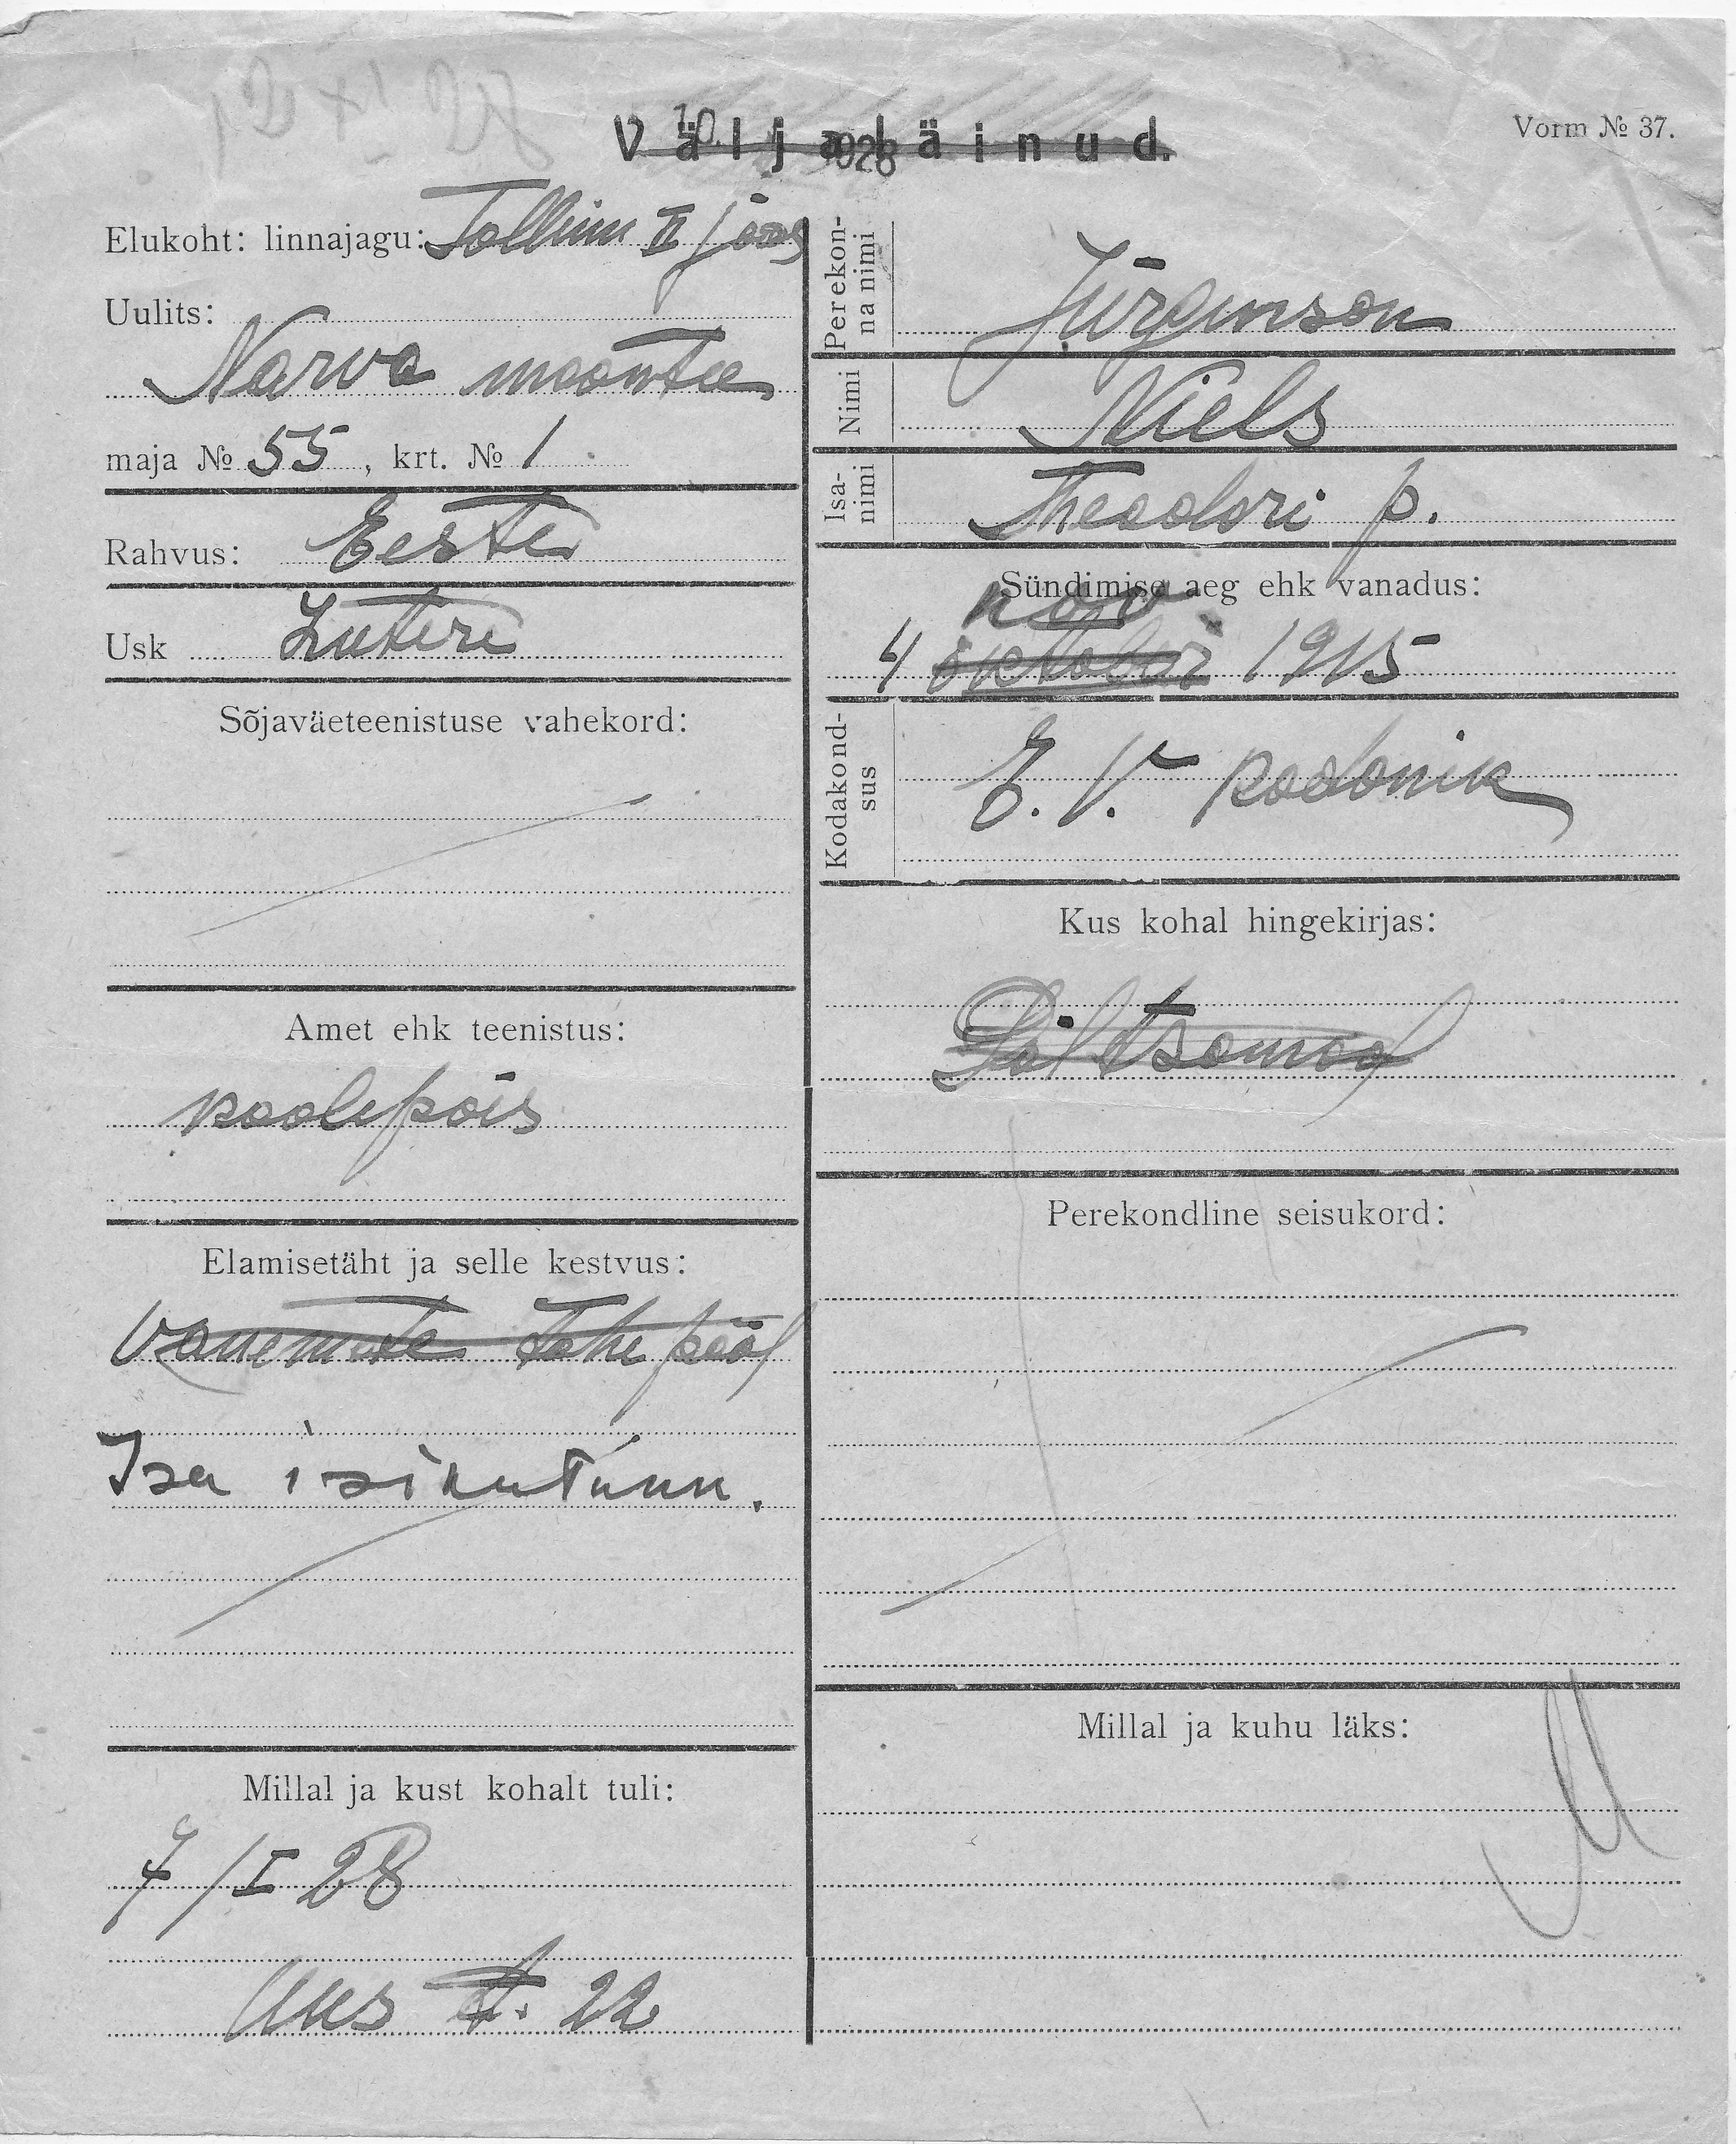 Väljaläinud.
Vorm № 37.
Elukoht: linnajagu: Tallinn II jaos
Uulits:
Narva maantee
maja № 55, krt. № 1
Rahvus: Eesti
Usk Luteri
Sõjaväeteenistuse vahekord:
Amet ehk teenistus:
koolipois
Elamisetäht ja selle kestvus:
Vanemate tähe pääl
Isa isikutunn.
Millal ja kust kohalt tuli:
7/I 28
Uus t. 22
Perekonna nimi
Jürgenson
Nimi
Niels
Isanimi
Theodori p.
Sündimise aeg ehk vanadus:
nov
4 oktober 1915
Kodakondsus
E. V. kodanik
Kus kohal hingekirjas:
Põltsamaal
Perekondline seisukord:
Millal ja kuhu läks: